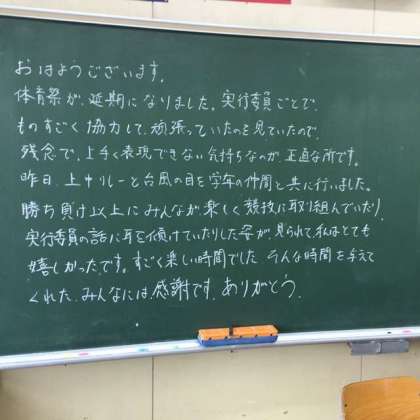 おはようございます。
体育祭が、延期になりました。実行委員ごとで、
ものすごく協力して、頑張っていたのを見ていたので、
残念で、上手く表現できない気持ちなのが、正直な所です。
昨日、上中リレーと台風の目を学年の仲間と共に行いました。
勝ち負け以上にみんなが楽しく競技に取り組んでいたり、
実行委員の話に耳を傾けていたりした姿が、見られて、私はとても
嬉しかったです。すごく楽しい時間でした そんな時間を与えて
くれた、みんなには感謝です。ありがとう。